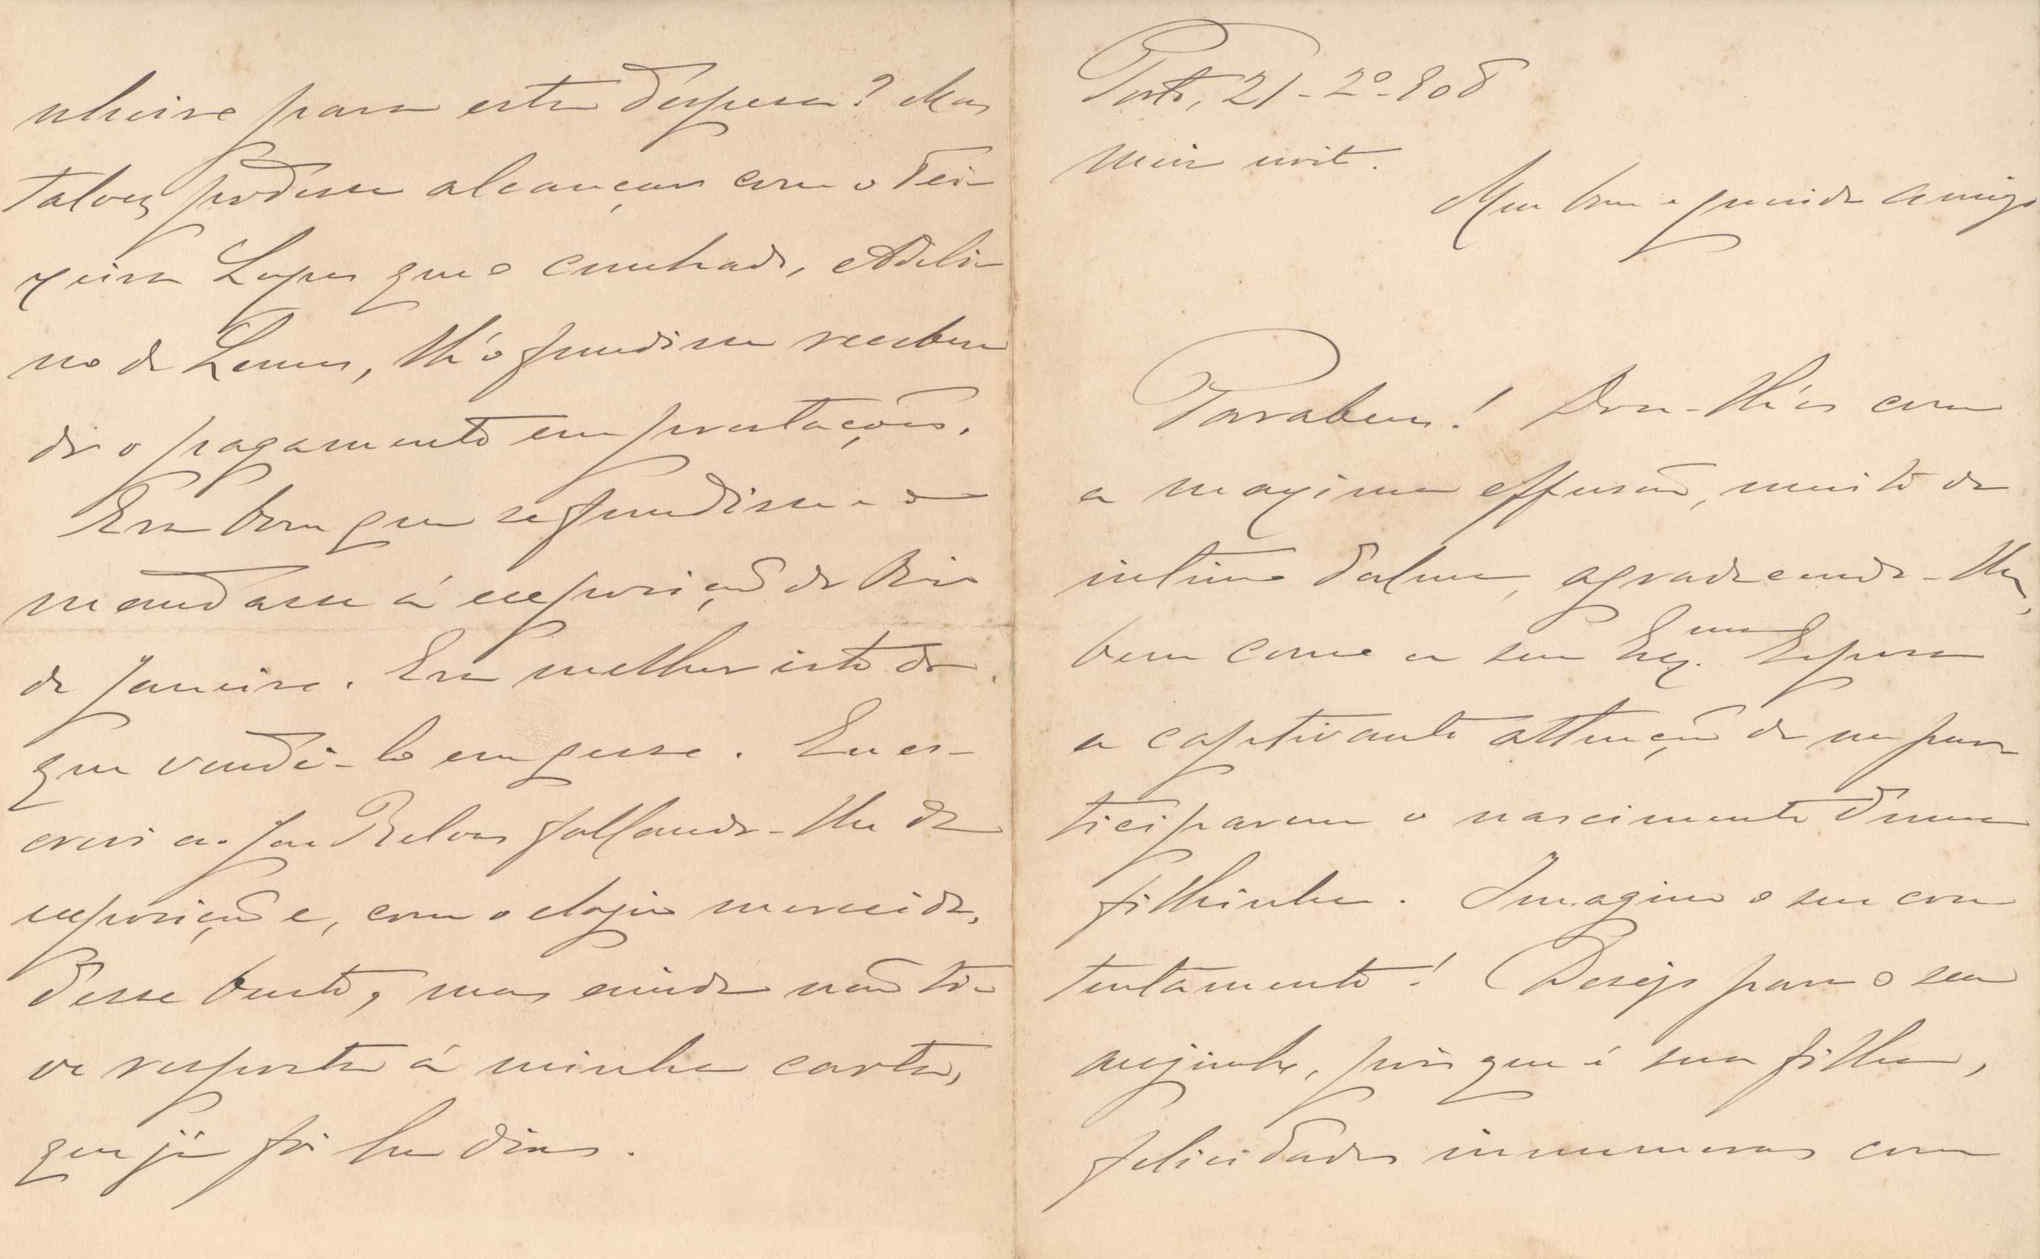 Porto, 21-2º-908
Meia noite.
Meu bom e querido amigo
Parabens! Dou-lh'os com
a maxima effusão, muito do
intimo d'alma, agradecendo-lhe,
bem como a sua Exᵐᵃ. Esposa
a captivante attenção de me par-
ticiparem o nascimento d'uma
filhinha. Imagino o seu con-
tentamento! Desejo para o seu
anjinho, pois que é sua filha,
felicidades innumeras com
nheiro para esta despesa? Mas
talvez podesse alcançar com o Tei-
xeira Lopes que o cunhado, Adeli-
no de Lemos, lh'o fundisse receben-
do o pagamento em prestações.
Era bom que se fundisse e o
mandasse á exposição do Rio
de Janeiro. Era melhor isto do
que vendê-lo em gesso. Eu es-
crevi ao José Relvas fallando-lhe da
exposição e, com o elogio merecido,
d'esse busto, mas ainda não ti-
ve resposta á minha carta,
que já foi ha dias.